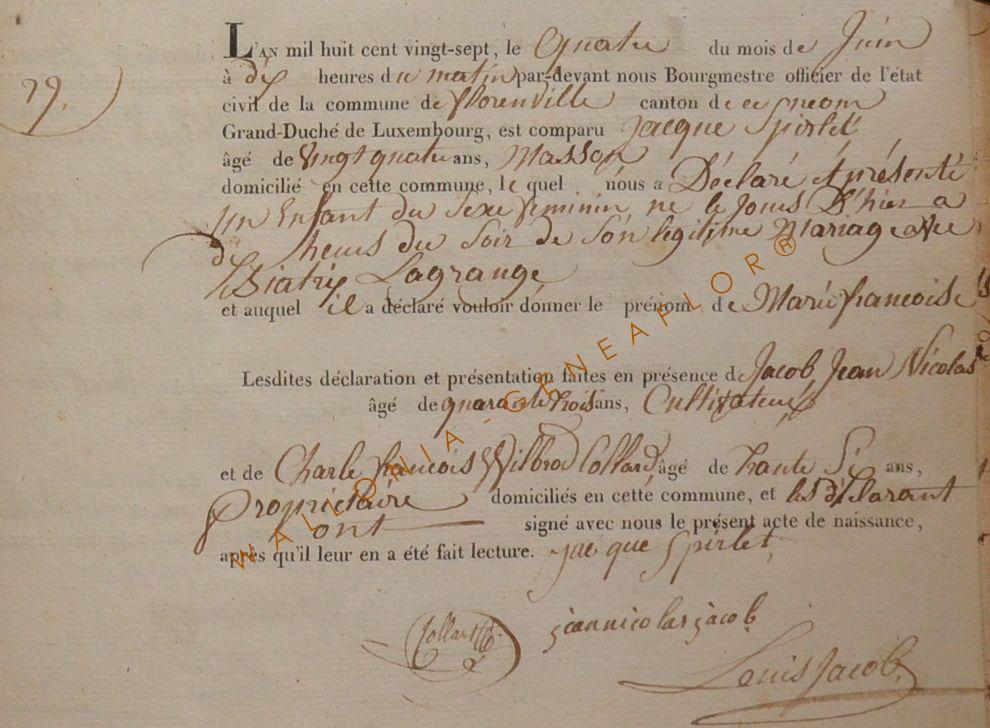 29.
L'AN mil huit cent vingt-sept, le Quatre du mois de Juin
à dix heures du matin par-devant nous Bourgmestre officier de l'état
civil de la commune de florenville canton de ce
Grand-Duché de Luxembourg, est comparu Jacque Spirlet
âgé de vingt quatre ans, Masson
domicilié en cette commune, le quel nous a Déclaré & présenté
un Enfant du sexe feminin né le jours D'hier a
dix heurs du soir de son légitime Mariage avec
Biatrix Lagrange
et auquel il a déclaré vouloir donner le prénom de Marie francoise
Lesdites déclaration et présentation faites en présence de Jacob Jean Nicolas
âgé de quarante trois ans, Cultivateur
et de Charle francois Wilbrod Collard âgé de trente Six ans,
Proprietaire domiciliés en cette commune, et les déclarant
ont signé avec nous le présent acte de naissance,
après qu'il leur en a été fait lecture. jacque spirlet
Collard
jeannicolas jacob
Louis Jacob
WALLONIA-GENEAFLOR®